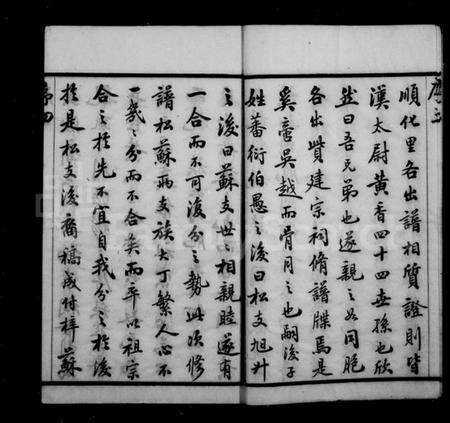 順化里各出譜相質證則皆
漢太尉黃香四十四世孫也欣
然曰吾兄弟也遂親之如同胞
各出貲建宗祠脩譜牒焉是
奚啻吳越而骨月之也嗣後子
姓蕃衍伯愚之後曰松支旭升
之後曰蘇支世之相親睦遂有
一合而不可復分之勢此次修
譜松蘇兩支族大丁繁人心不
一幾之分而不合矣而卒以祖宗
合之於先不宜自我分之於後
於是松支後裔稿成付梓蘇